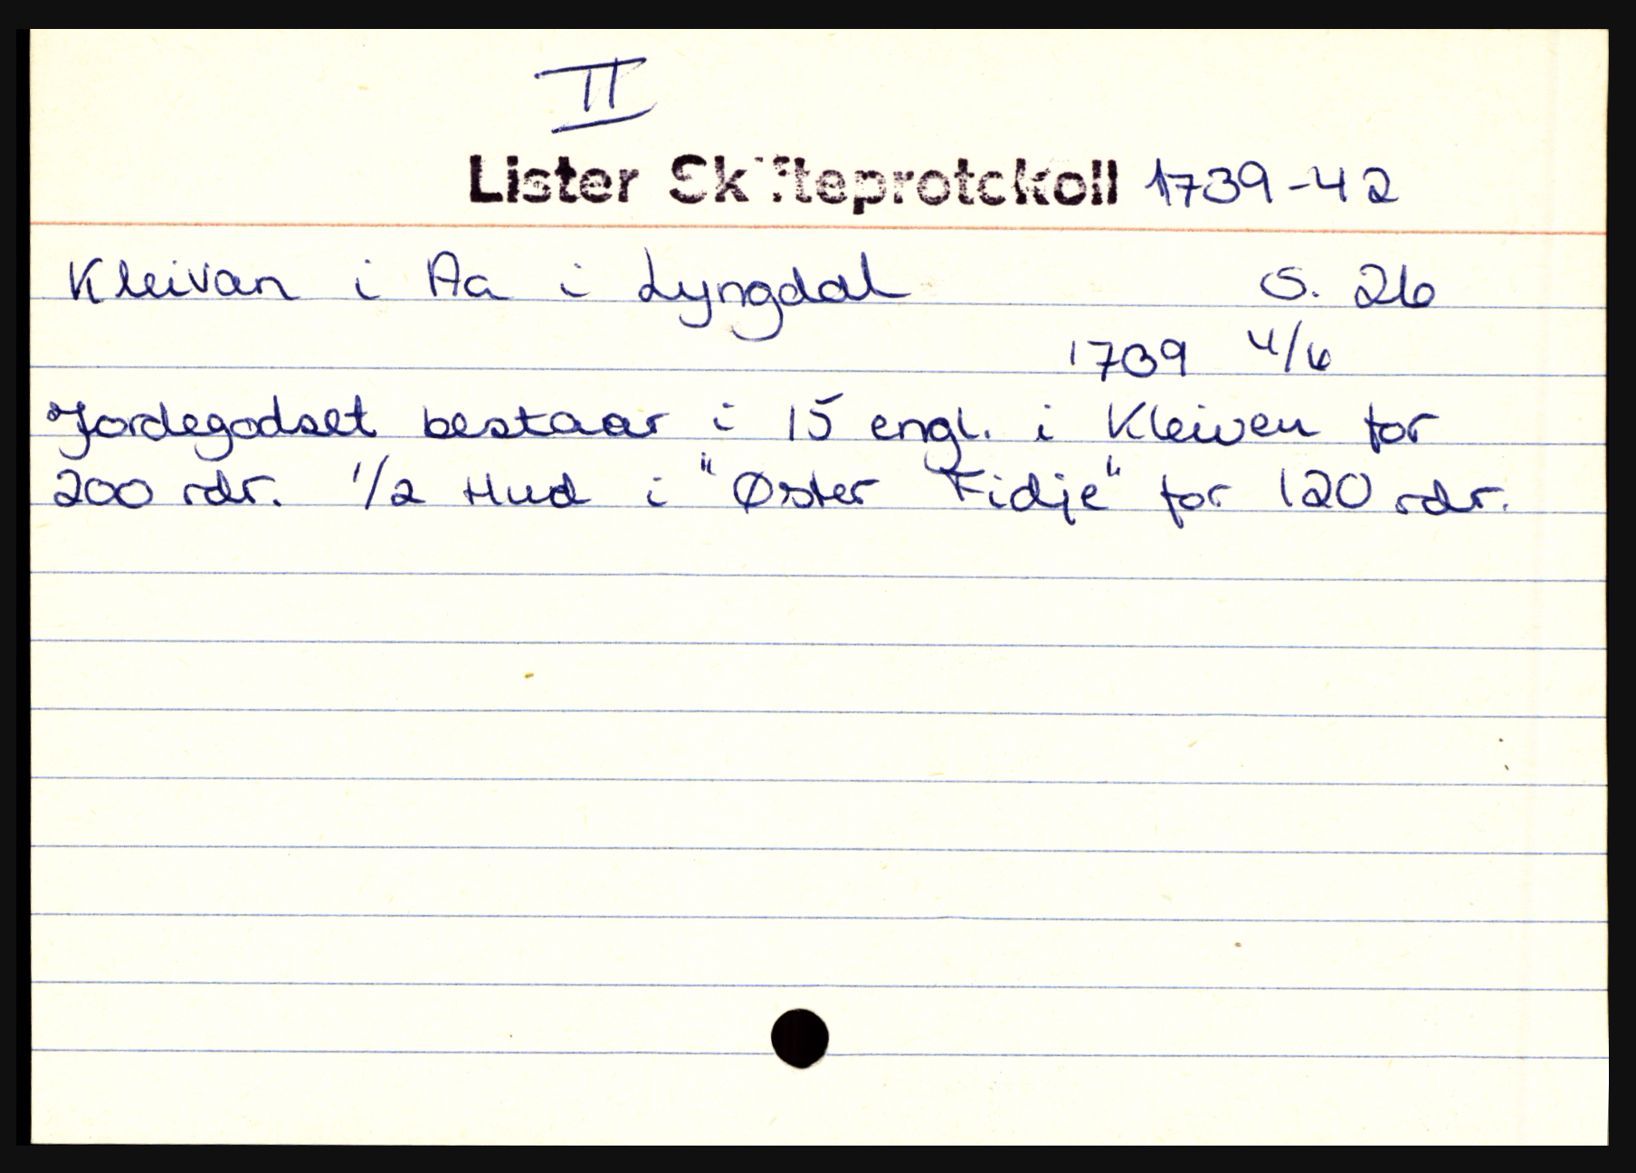 II
Lister Skifteprotokoll 1739-42
Kleivan i Aa i Lyngdal S. 26
1739 4/6
Jordegodset bestaar i 15 engl. i Kleiven for
200 rdr. 1/2 Hud i "Øster Fidje" for 120 rdr.